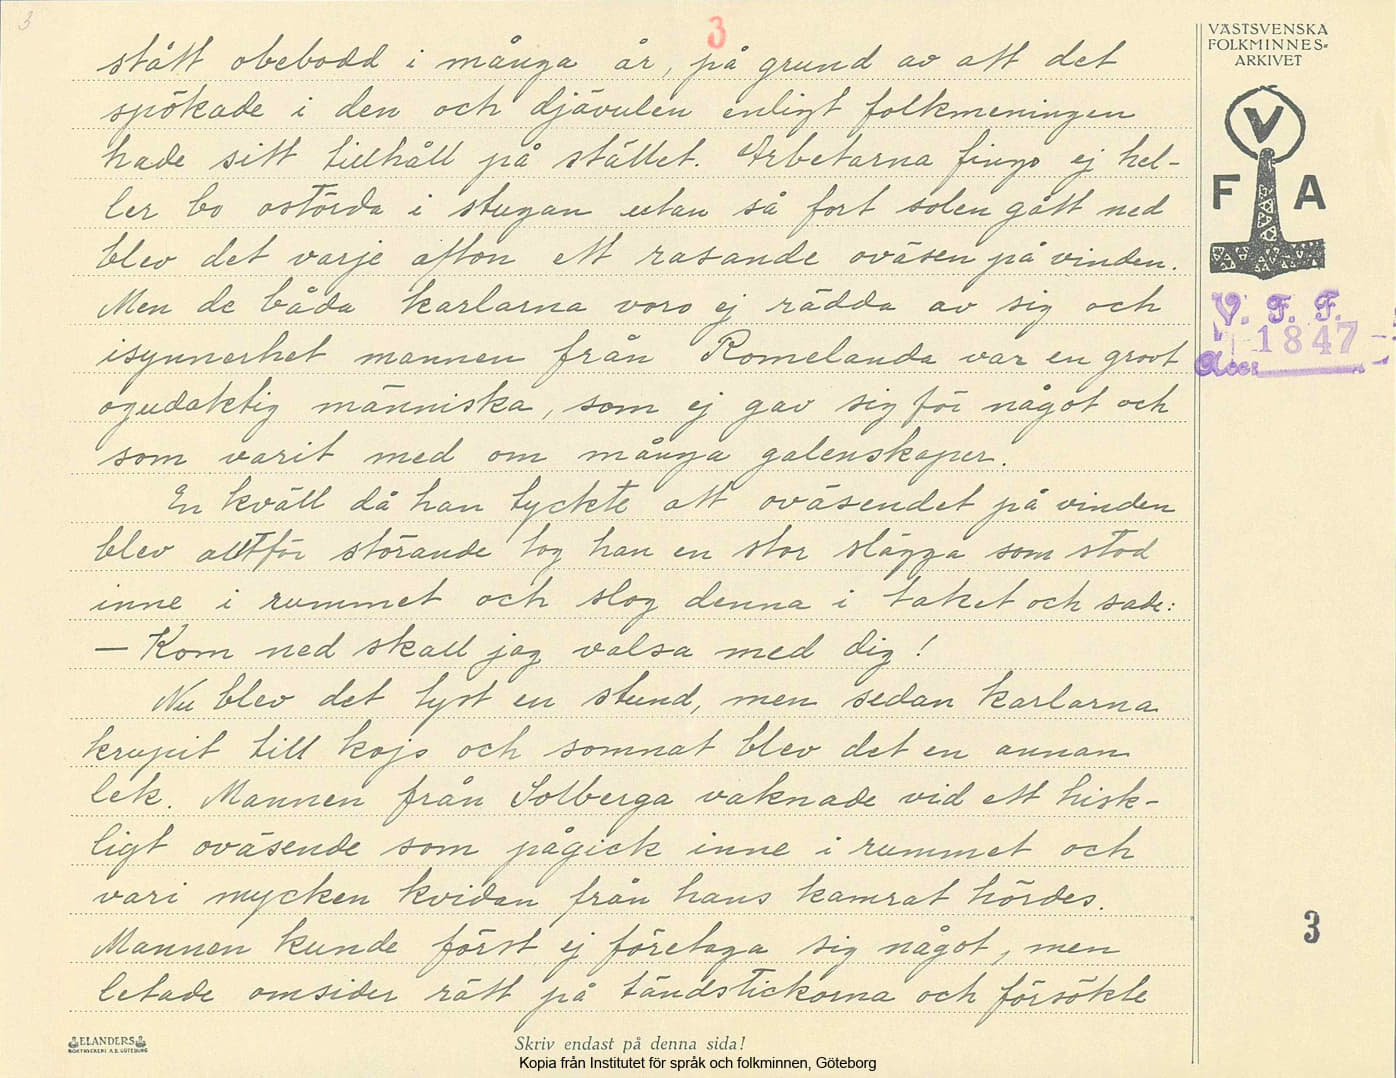 3
3
VÄSTSVENSKA
FOLKMINNES-
ARKIVET
V
F A
V. F. F.
1847
Acc.
stått obebodd i många år, på grund av att det
spökade i den och djävulen enligt folkmeningen
hade sitt tillhåll på stället. Arbetarna fingo ej hel-
ler bo ostörda i stugan utan så fort solen gått ned
blev det varje afton ett rasande oväsen på vinden.
Men de båda karlarna voro ej rädda av sig och
isynnerhet mannen från Romelanda var en grovt
ogudaktig människa, som ej gav sig för något och
som varit med om många galenskaper.
En kväll då han tyckte att oväsendet på vinden
blev alltför störande tog han en stor slägga som stod
inne i rummet och slog denna i taket och sade:
— Kom ned skall jag valsa med dig!
Nu blev det tyst en stund, men sedan karlarna
krupit till kojs och somnat blev det en annan
lek. Mannen från Solberga vaknade vid ett hisk-
ligt oväsende som pågick inne i rummet och
vari mycken kvidan från hans kamrat hördes.
Mannen kunde först ej företaga sig något, men
letade omsider rätt på tändstickorna och försökte
3
ELANDERS
BOKTRYCKERI A.B. GÖTEBORG
Skriv endast på denna sida!
Kopia från Institutet för språk och folkminnen, Göteborg